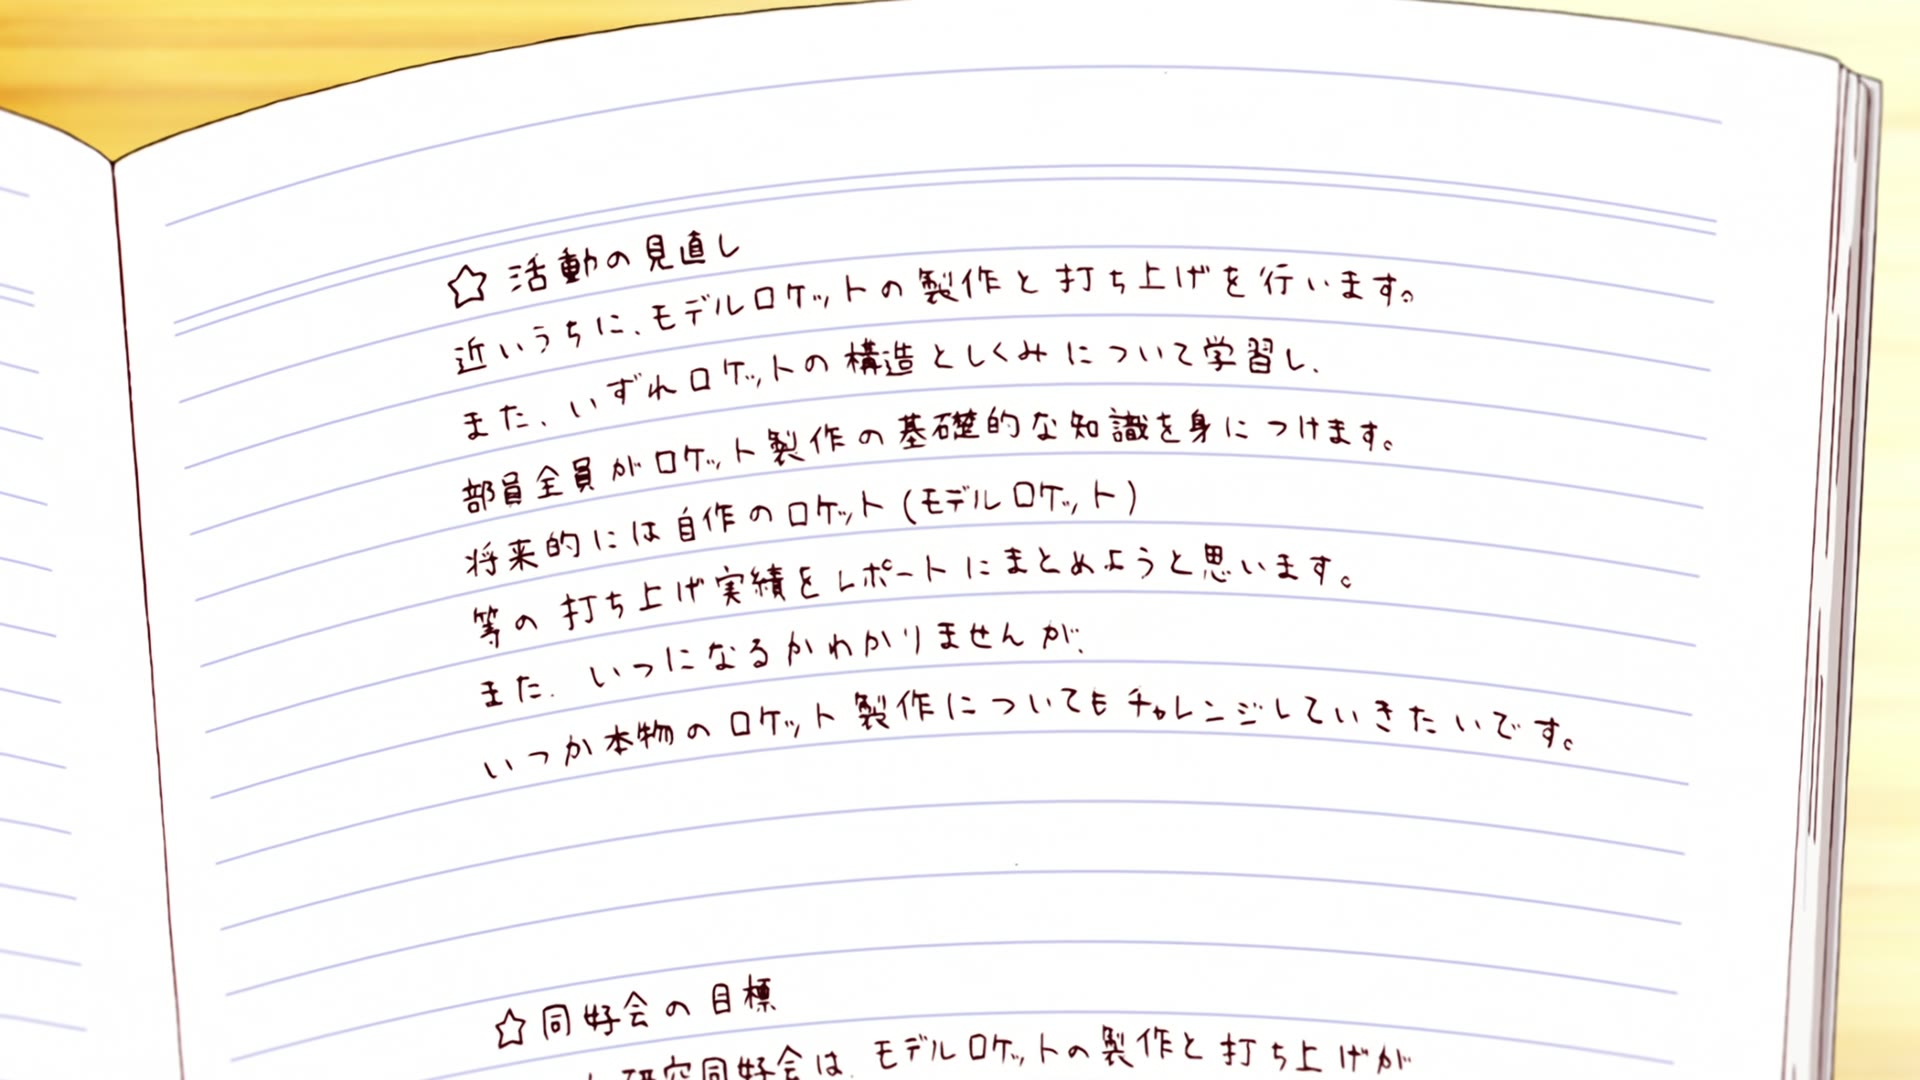 ☆活動の見直し
近いうちに、モデルロケットの製作と打ち上げを行います。
また、いずれロケットの構造としくみについて学習し、
部員全員がロケット製作の基礎的な知識を身につけます。
将来的には自作のロケット(モデルロケット)
等の打ち上げ実績をレポートにまとめようと思います。
また、いつになるかわかりませんが、
いつか本物のロケット製作についてもチャレンジしていきたいです。
☆同好会の目標
研究同好会は、モデルロケットの製作と打ち上げが